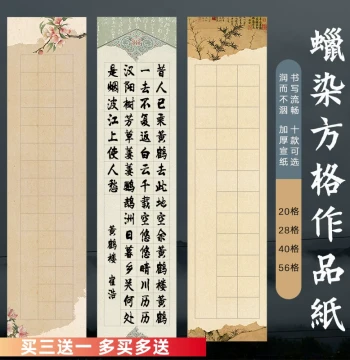 蠟染方格作品紙
书写流畅 十款可选
润而不洇 加厚宣纸
20格
28格
40格
56格
昔人已乘黄鹤去此地空余黄鹤楼黄鹤
一去不复返白云千载空悠悠晴川历历
汉阳树芳草萋萋鹦鹉洲日暮乡关何处
是烟波江上使人愁
黄鹤楼 崔浩
买三送一 多买多送